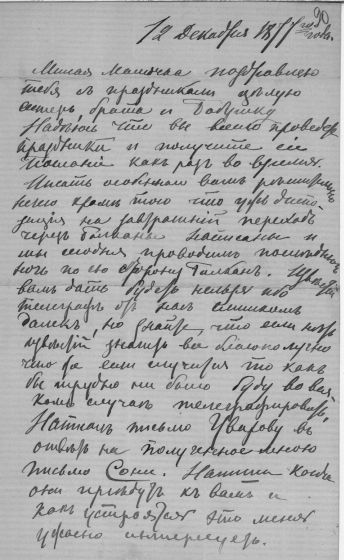 90
12 Декабря 1877 го года.
Милая Мамочка поздравляю
тебя съ праздниками цѣлую
сестеръ, брата и Бабушку
Надѣюсь что вы весело проведете
праздники и получите сіе
посланіе какъ разъ во время.
Писать особенно вамъ
нечего кромѣ того что ужъ диспо-
зиція на завтрашній переходъ
черезъ Балканы написаны и
мы сегодня проводимъ послѣднюю
ночь по сю сторону Балканъ.
вамъ дать будетъ нельзя ибо
телеграфъ отъ насъ слишкомъ
далекъ, но знайте, что если нѣтъ
извѣстій значитъ все благополучно
что же если случится то какъ
бы трудно ни было буду во вся-
комъ случаѣ телеграфировать.
Написалъ письмо Уварову въ
отвѣтъ на полученное мною
письмо Сони. Напиши когда
они пріѣдутъ къ вамъ и
какъ устроятся это меня
ужасно интересуетъ.